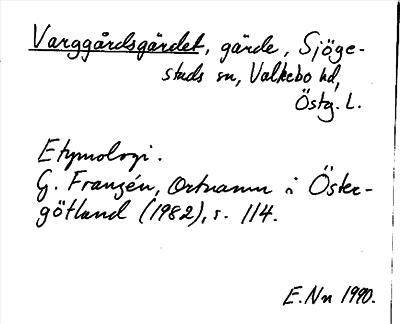 Varggårdsgärdet, gärde, Sjöge-
stads sn, Valkebo hd,
Östg. L.
Etymologi.
G. Franzén, Ortnamn i Öster-
götland (1982), s. 114.
E.Nn 1990.